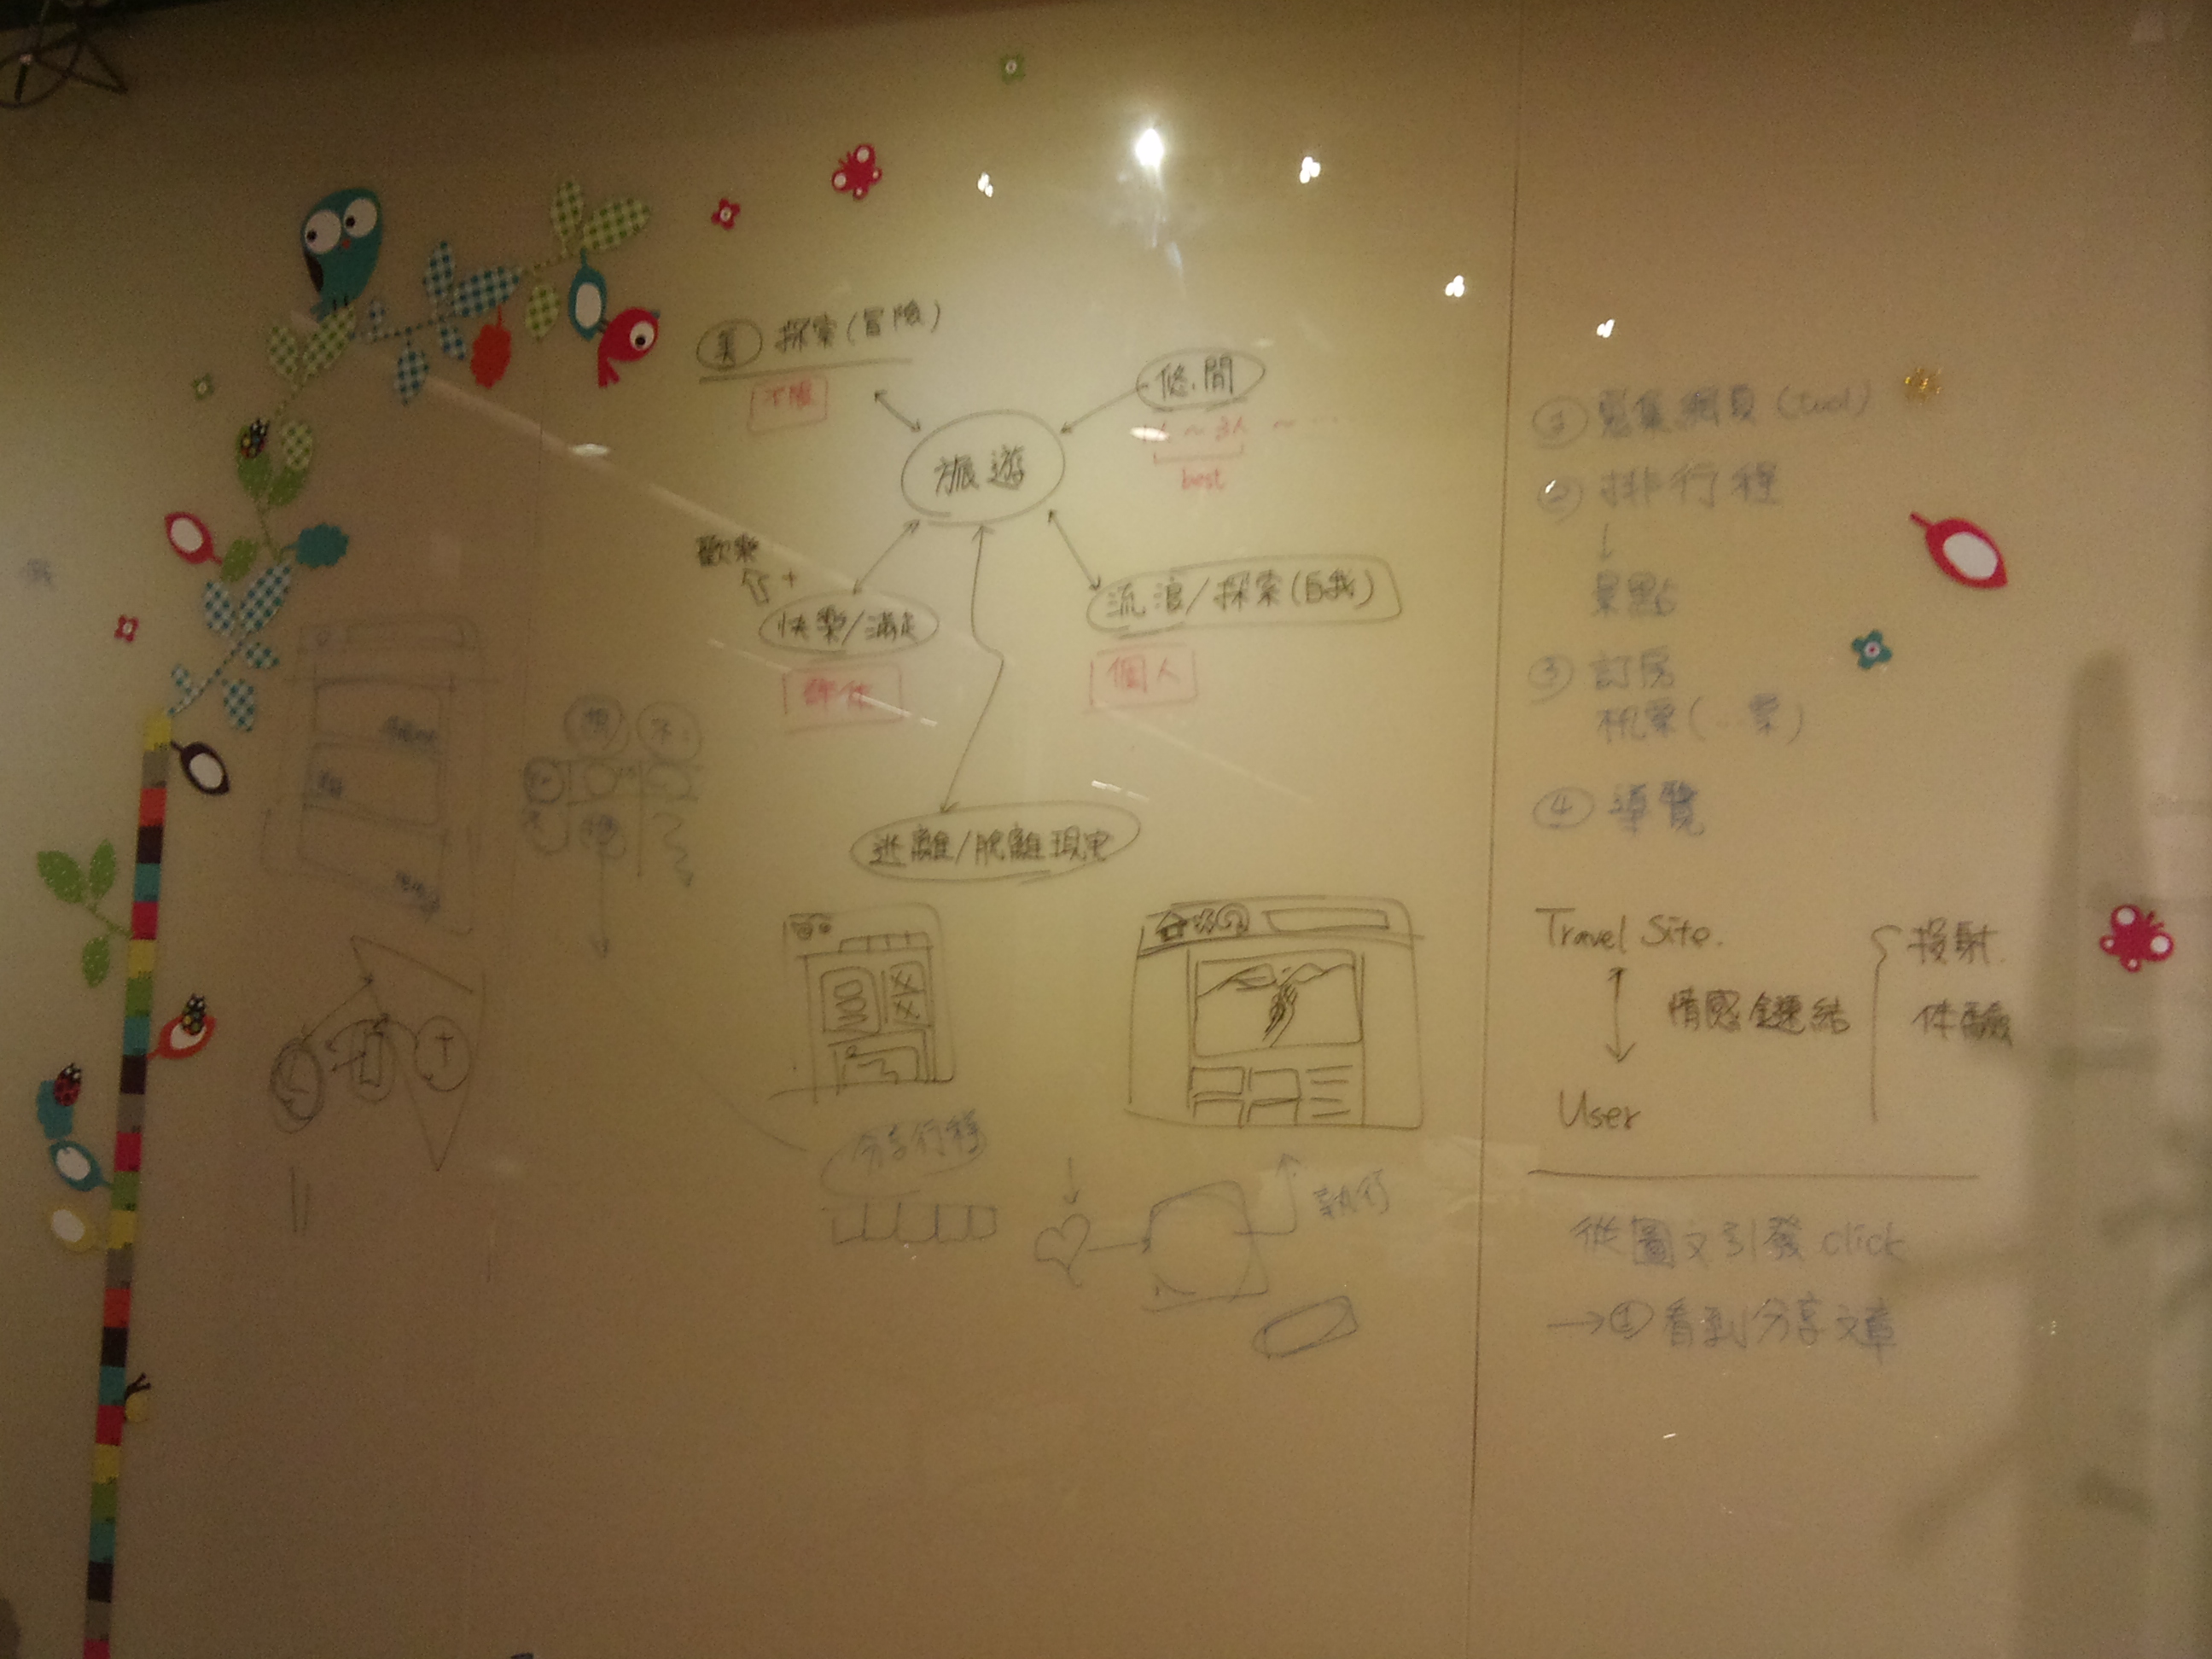 美 探索(冒險)
不限
悠閒
1人 ~ 3人 ~ ...
best
旅遊
歡樂
+
快樂/滿足
群体
流浪/探索(自我)
個人
逃離/脫離現实
分享行程
執行
① 蒐集網頁 (tool)
② 排行程
↓
景點
③ 訂房
机票( 票)
④ 導覽
Travel Site.
情感鏈結
投射.
体驗
User
從圖文引發 click
→① 看到分享文章